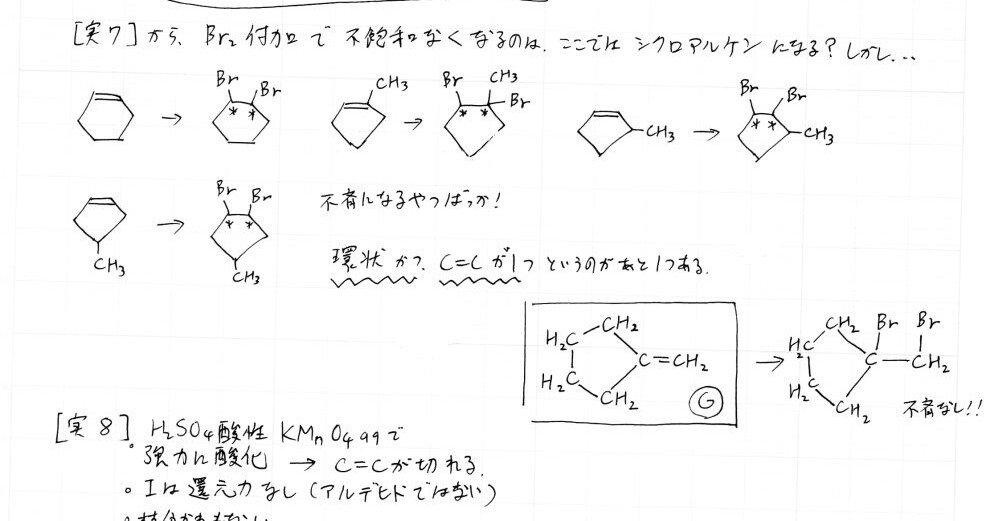 [実7]から、Br₂付加で不飽和なくなるのは、ここではシクロアルケンになる?しかし...
Br Br
CH₃
Br CH₃
Br
CH₃
Br Br
CH₃
CH₃
Br Br
CH₃
* *
* *
* *
* *
不斉になるやつばっか!
環状かつ、C=Cが1つというのがあと1つある。
H₂C CH₂
C=CH₂
H₂C CH₂
G
CH₂ Br Br
H₂C C CH₂
H₂C CH₂
不斉なし!!
[実8]
・H₂SO₄酸性 KMnO₄aqで
強力に酸化 → C=Cが切れる。
・Iは還元力なし(アルデヒドではない)